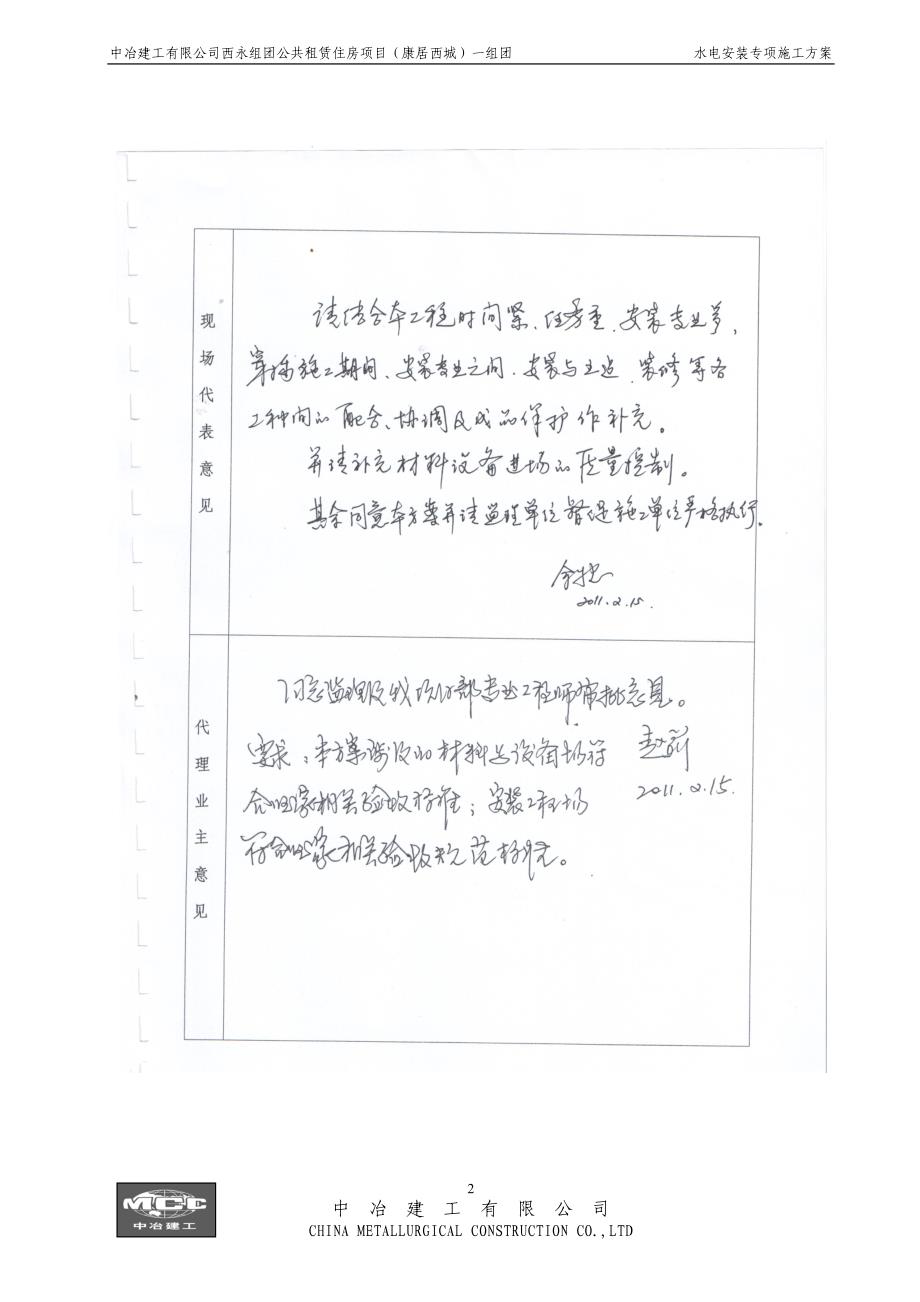 中冶建工有限公司西永组团公共租赁住房项目（康居西城）一组团 水电安装专项施工方案
现场代表意见
请结合本工程时间紧、任务重、安装专业多,
穿插施工期间、安装专业之间、安装与土建、装修等各
工种间的配合、协调及成品保护作补充。
并请补充材料设备进场的质量控制。
其余同意本方案并请监理单位督促施工单位严格执行.
余
2011.2.15.
代理业主意见
同意监理及我项目部专业工程师审批意见。
要求：本方案涉及的材料及设备均符
合国家相关验收标准；安装工程均
符合国家相关验收规范标准。
2011.2.15.
MCC
中冶建工
2
中冶建工有限公司
CHINA METALLURGICAL CONSTRUCTION CO.,LTD